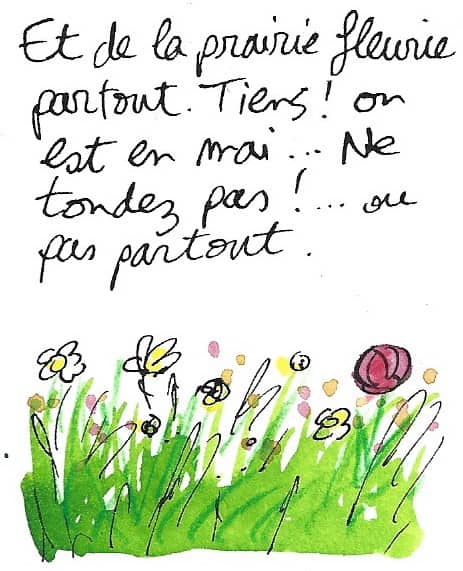 Et de la prairie fleurie
partout. Tiens! on
est en mai... Ne
tondez pas!... ou
pas partout.